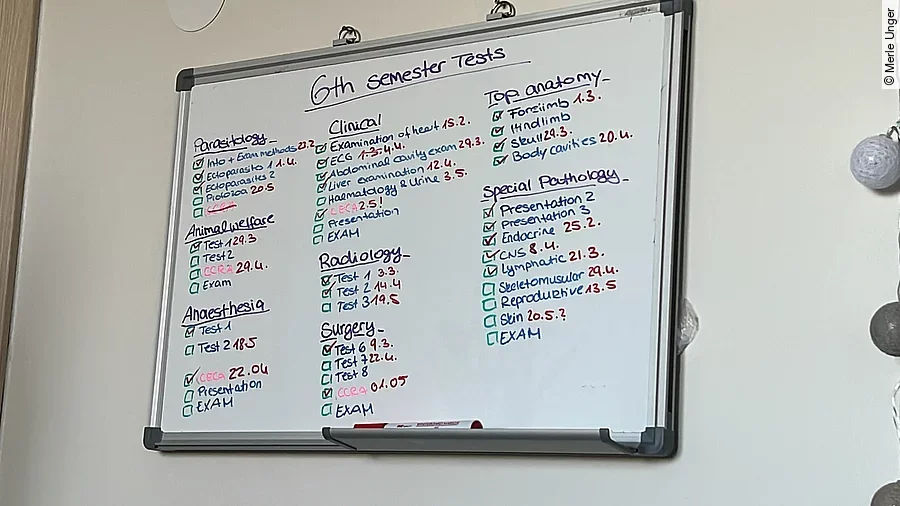 6th Semester Tests
Parasitology
Into + Exam methods 23.2.
Ectoparasito 1 1.4.
Ectoparasites 2
Protozoa 20.5
Animal welfare
Test 1 29.3
Test 2
CCRZ 29.4.
Exam
Anaesthesia
Test 1
Test 2 18.5
CECA 22.04
Presentation
EXAM
Clinical
Examination of heart 15.2.
ECG 1.3. 4.4.
Abdominal cavity exam 29.3.
Liver examination 12.4.
Haematology & Urine 3.5.
CECA 2.5!
Presentation
EXAM
Radiology
Test 1 3.3.
Test 2 14.4
Test 3 19.5
Surgery
Test 6 9.3.
Test 7 22.4.
Test 8
CCRA 01.05
EXAM
Top. anatomy
Forelimb 1.3.
Hindlimb
Skull 29.3.
Body cavities 20.4.
Special Pathology
Presentation 2
Presentation 3
Endocrine 25.2.
CNS 8.4.
Lymphatic 21.3.
Skeletomuscular 29.4.
Reproductive 13.5
Skin 20.5.?
EXAM
© Merle Unger